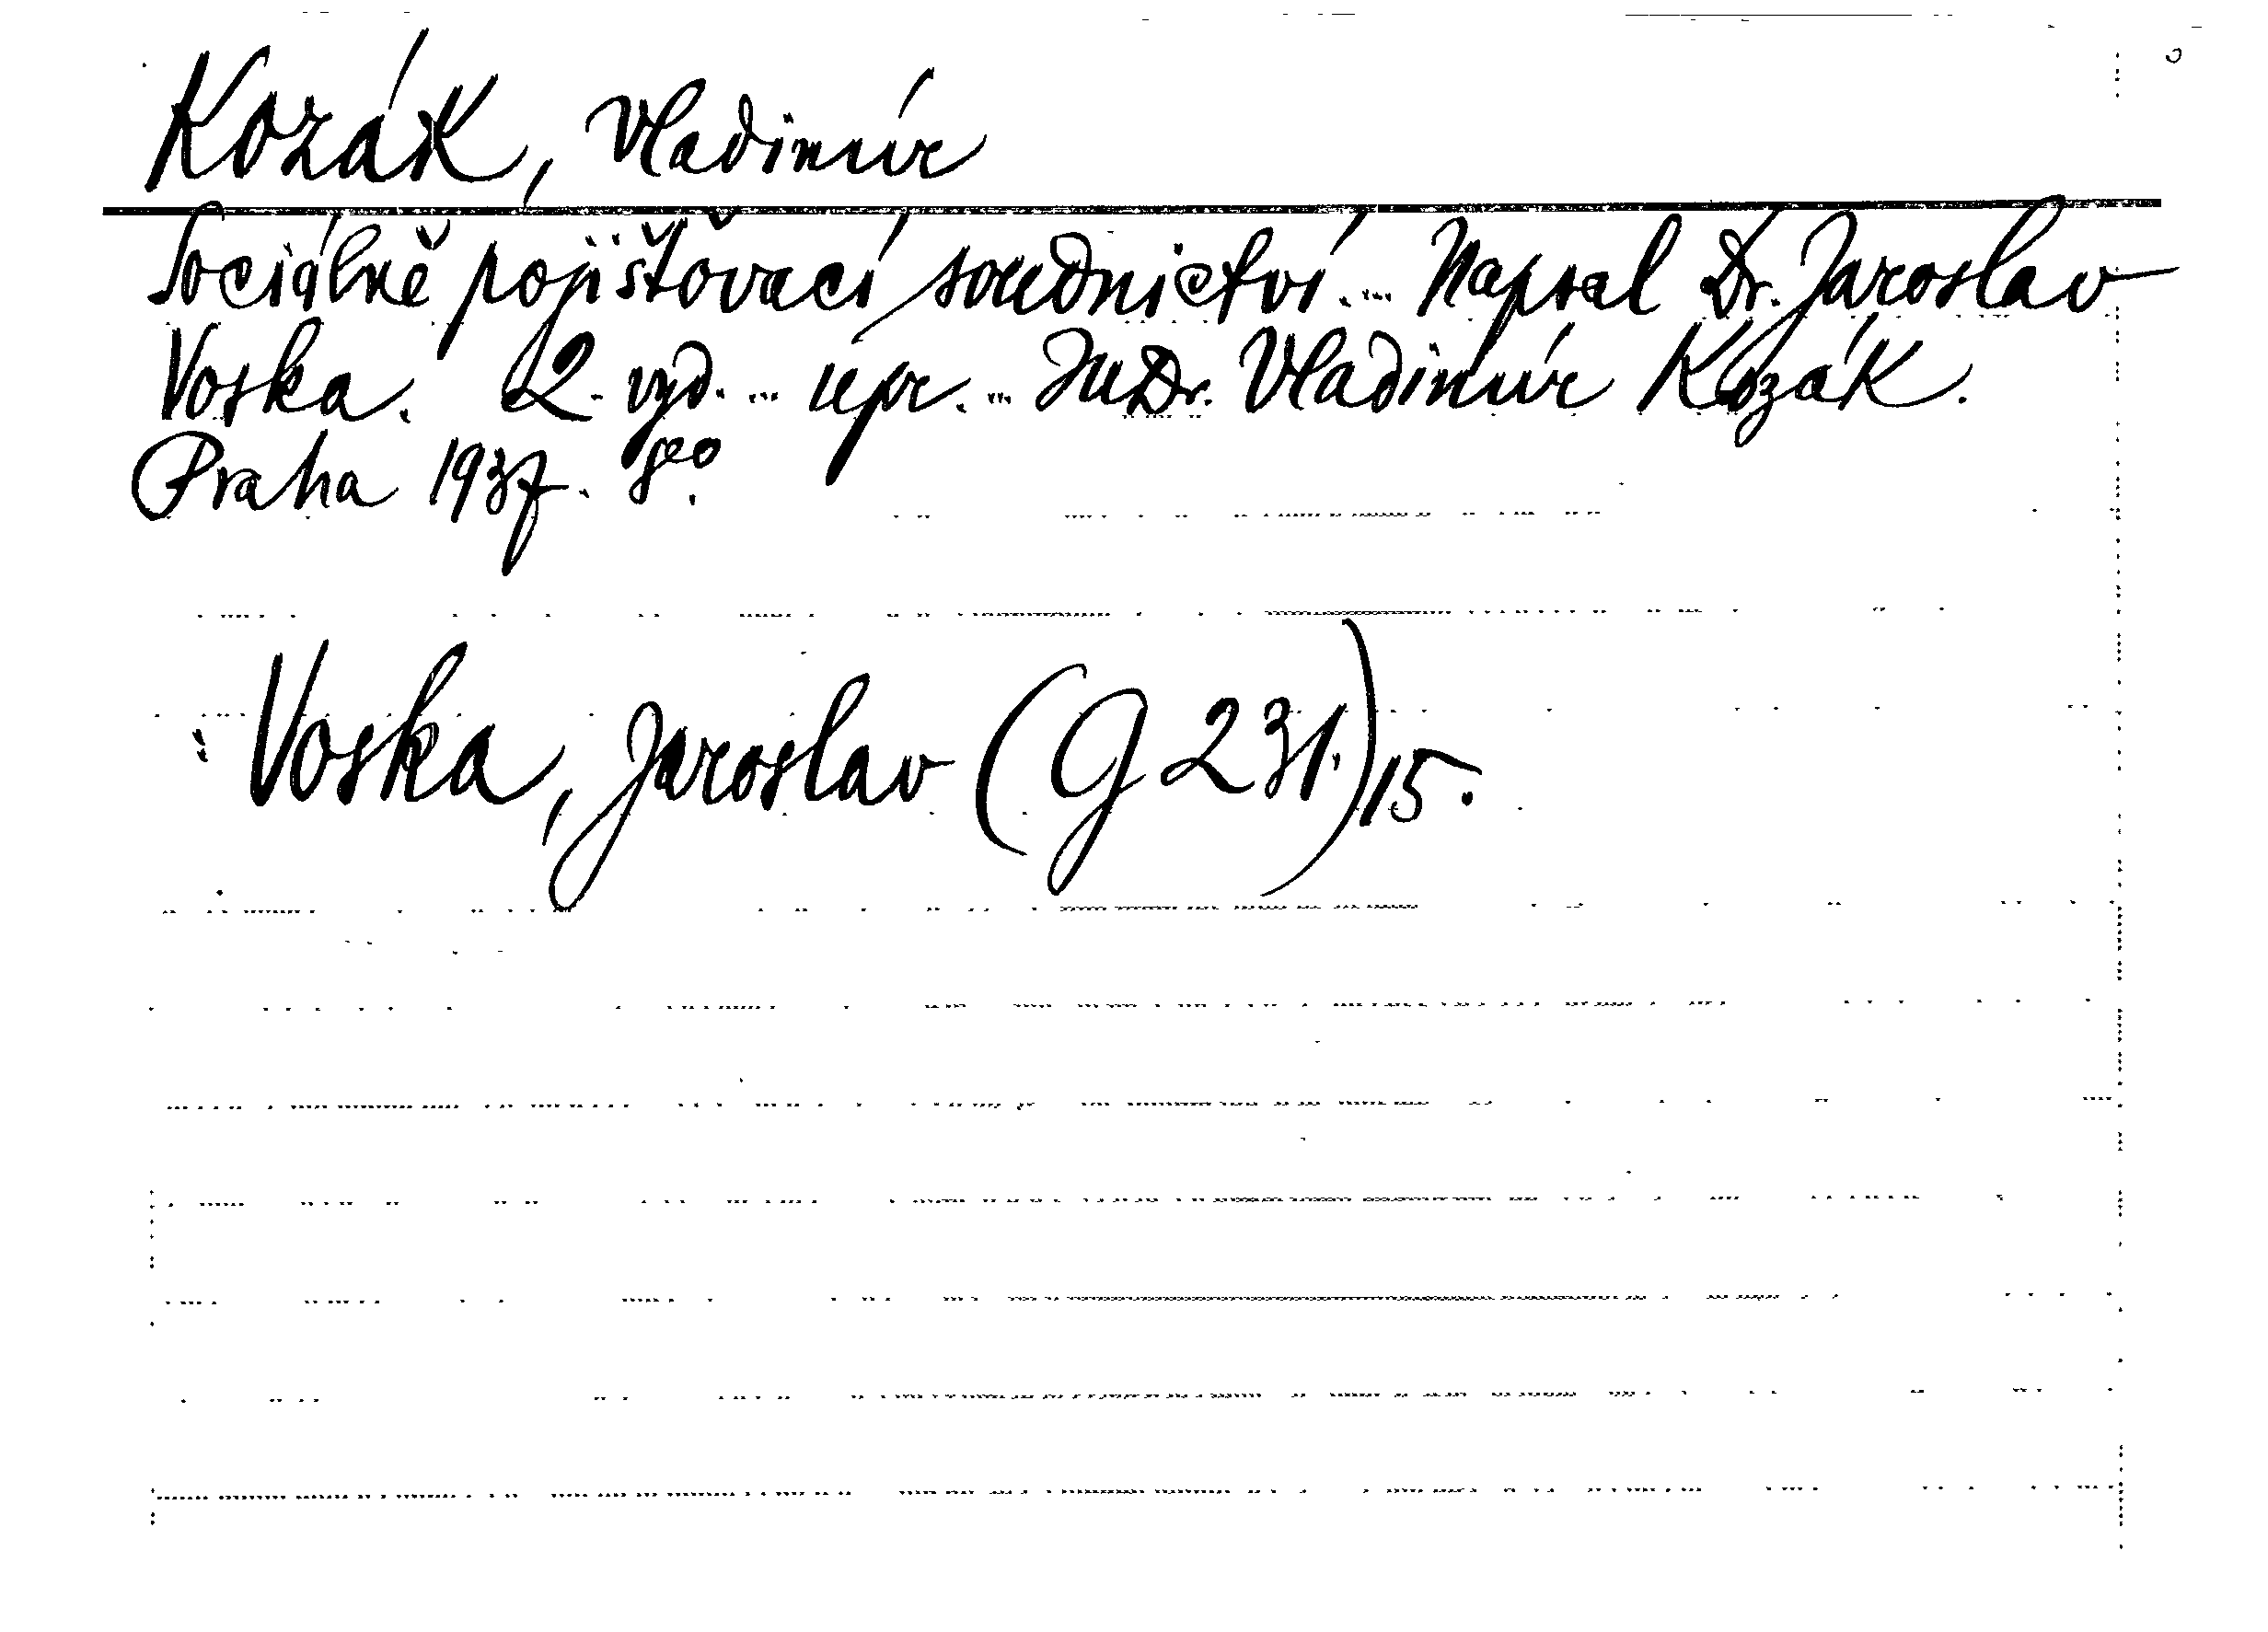 Kozák, Vladimír
Sociálně pojišťovací soudnictví. ... Napsal Dr. Jaroslav
Voska. 2. vyd. ... upr. ... JUDr. Vladimír Kozák.
Praha 1937. 8°.
Voska, Jaroslav (G 231.)/15.